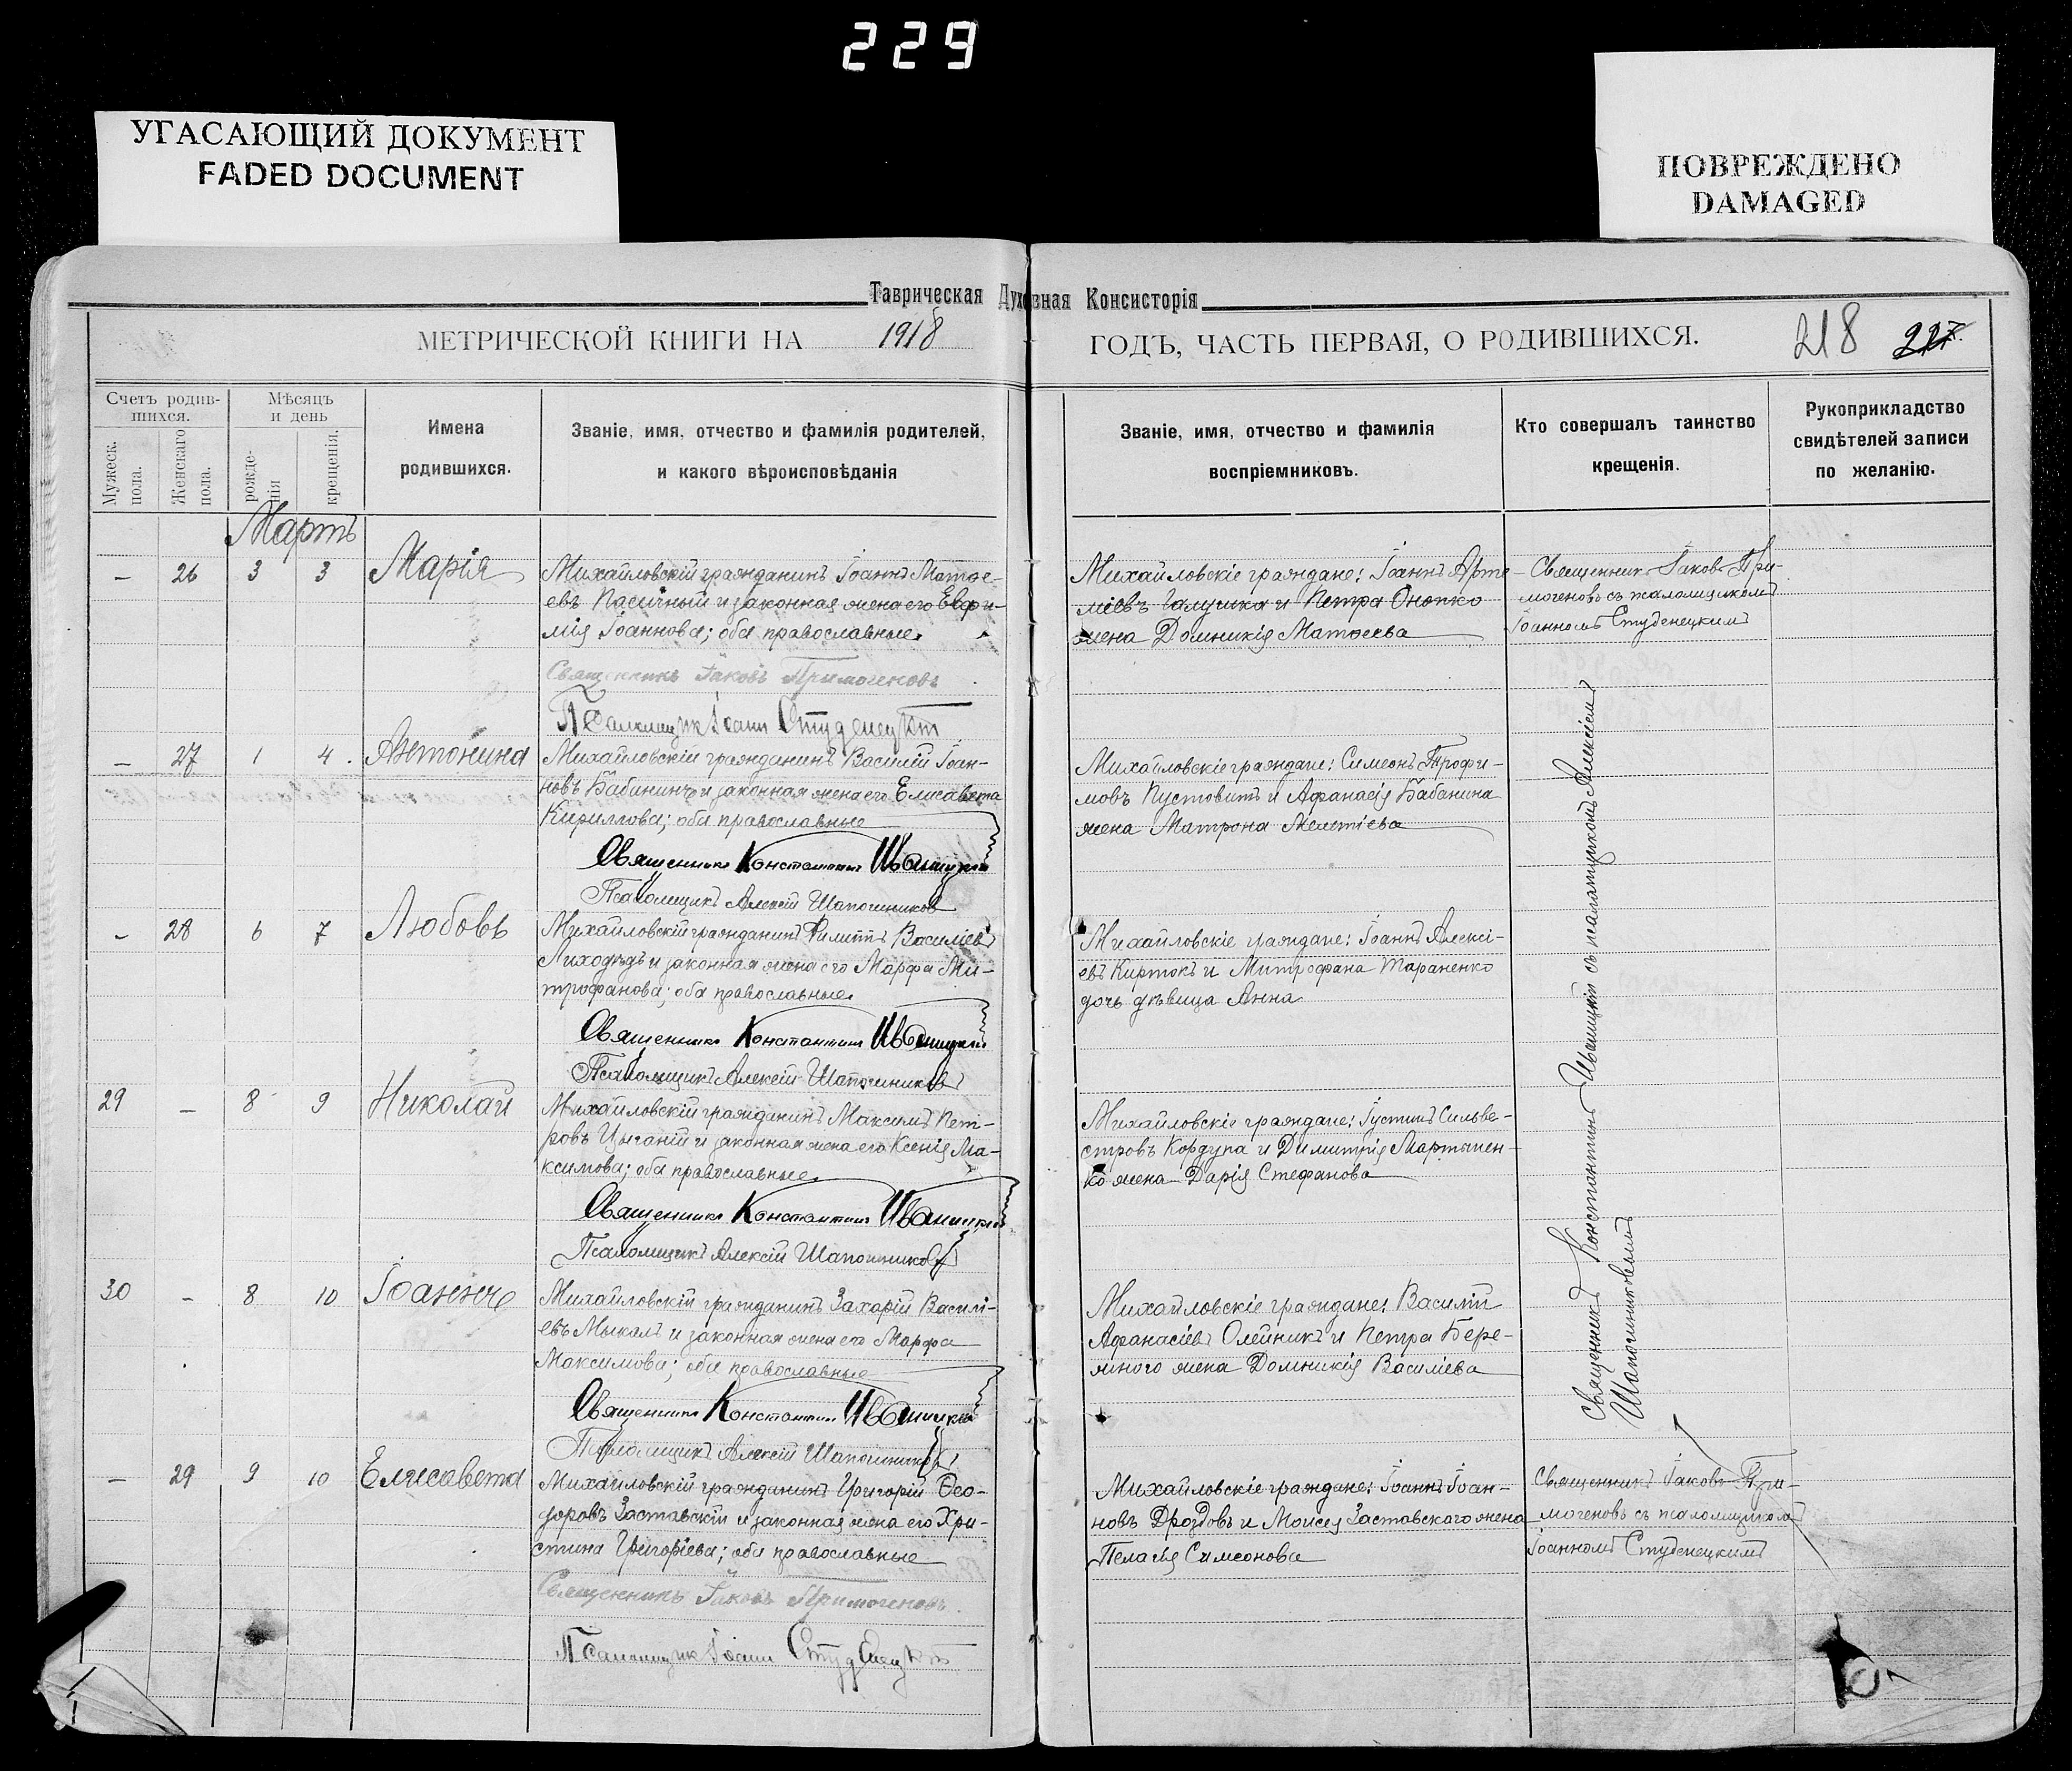 229
УГАСАЮЩИЙ ДОКУМЕНТ
FADED DOCUMENT
ПОВРЕЖДЕНО
DAMAGED
Таврическая Духовная Консисторія
МЕТРИЧЕСКОЙ КНИГИ НА 1918 ГОДЪ, ЧАСТЬ ПЕРВАЯ, О РОДИВШИХСЯ. 218 217
Счетъ родив-
шихся.
Мужеск.
пола.
Женскаго
пола.
Мѣсяцъ
и день
рожде-
нія
крещенія.
Имена
родившихся.
Званіе, имя, отчество и фамилія родителей,
и какого вѣроисповѣданія
Званіе, имя, отчество и фамилія
воспріемниковъ.
Кто совершалъ таинство
крещенія.
Рукоприкладство
свидѣтелей записи
по желанію.
Мартъ
– 26 3 3 Марія
Михайловскій гражданинъ Іоаннъ Матѳе-
евъ Пасичный и законная жена его Евфи-
мія Іоаннова; оба православные.
Священникъ Іаковъ Примогеновъ
Псаломщик Іоанн Студенецкій
Михайловскіе граждане: Іоаннъ Арте-
міевъ Галушка и Петра Онопко
жена Домникія Матѳеева
Священник Іаковъ При-
могеновъ съ псаломщикомъ
Іоанномъ Студенецкимъ
– 27 1 4. Антонина
Михайловскій гражданинъ Василій Іоан-
новъ Бабининъ и законная жена его Елисавета
Кириллова; оба православные
Священникъ Константинъ Иваницкій
Псаломщикъ Алексій Шапошников
Михайловскіе граждане: Симеонъ Трофи-
мовъ Пустовитъ и Афанасія Бабанина
жена Матрона Мелетіева
– 28 6 7 Любовь
Михайловскій гражданинъ Филиппъ Василіевъ
Лиходѣдъ и законная жена его Марфа Ми-
трофанова; оба православные.
Священникъ Константинъ Иваницкій
Псаломщикъ Алексій Шапошниковъ
Михайловскіе граждане: Іоаннъ Алексі-
евъ Киртокъ и Митрофана Тараненко
дочь дѣвица Анна
29 – 8 9 Николай
Михайловскій гражданинъ Максимъ Пет-
ровъ Цыганій и законная жена его Ксенія Ма-
ксимова; оба православные.
Священникъ Константинъ Иваницкій
Псаломщикъ Алексій Шапошниковъ
Михайловскіе граждане: Іустинъ Сильве-
стровъ Кордупа и Димитрія Мартынен-
ко жена Дарія Стефанова
30 – 8 10 Іоаннъ
Михайловскій гражданинъ Захарій Василі-
евъ Мыкалъ и законная жена его Марфа
Максимова; оба православные
Священникъ Константинъ Иваницкій
Псаломщикъ Алексій Шапошниковъ
Михайловскіе граждане: Василій
Афанасіевъ Олейникъ и Петра Бере-
жного жена Домникія Василіева
Священникъ Константинъ Иваницкій съ псаломщикомъ Алексіемъ
Шапошниковымъ
– 29 9 10 Елисавета
Михайловскій гражданинъ Григорій Ѳео-
доровъ Заставскій и законная жена его Хри-
стина Григоріева; оба православные
Священникъ Іаковъ Примогеновъ.
Псаломщик Іоанн Студенецкій
Михайловскіе граждане: Іоаннъ Іоан-
новъ Дроздовъ и Моисея Заставского жена
Пелагія Симеонова
Священникъ Іаковъ При-
могеновъ съ псаломщикомъ
Іоанномъ Студенецкимъ